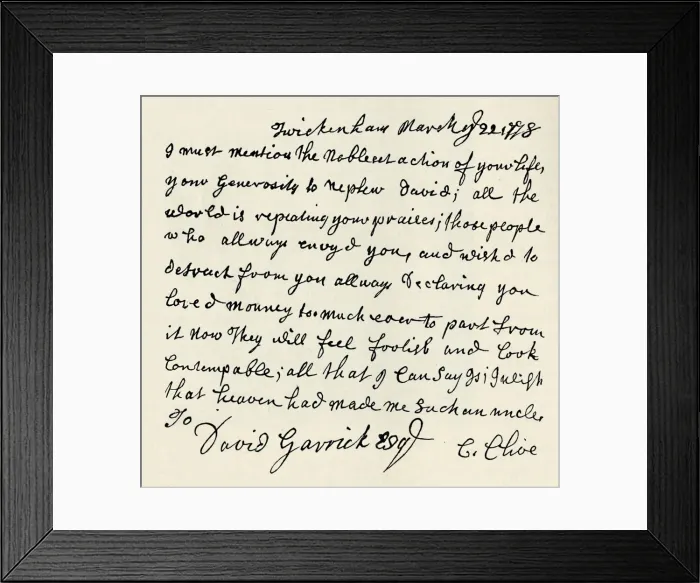 Twickenham March ye 22 1778
I must mention the Nobleest action of your life,
your Generosity to nephew David; all the
world is repeating your praises; those people
who allways envyd you, and wishd to
detract from you allways Declaring you
loved mouney too much ever to part from
it now They will feel foolish and look
Contempable; all that I Can Say Is; I wish
that heaven had made me Such an uncle,
To
David Garrick Esqr
C. Clive